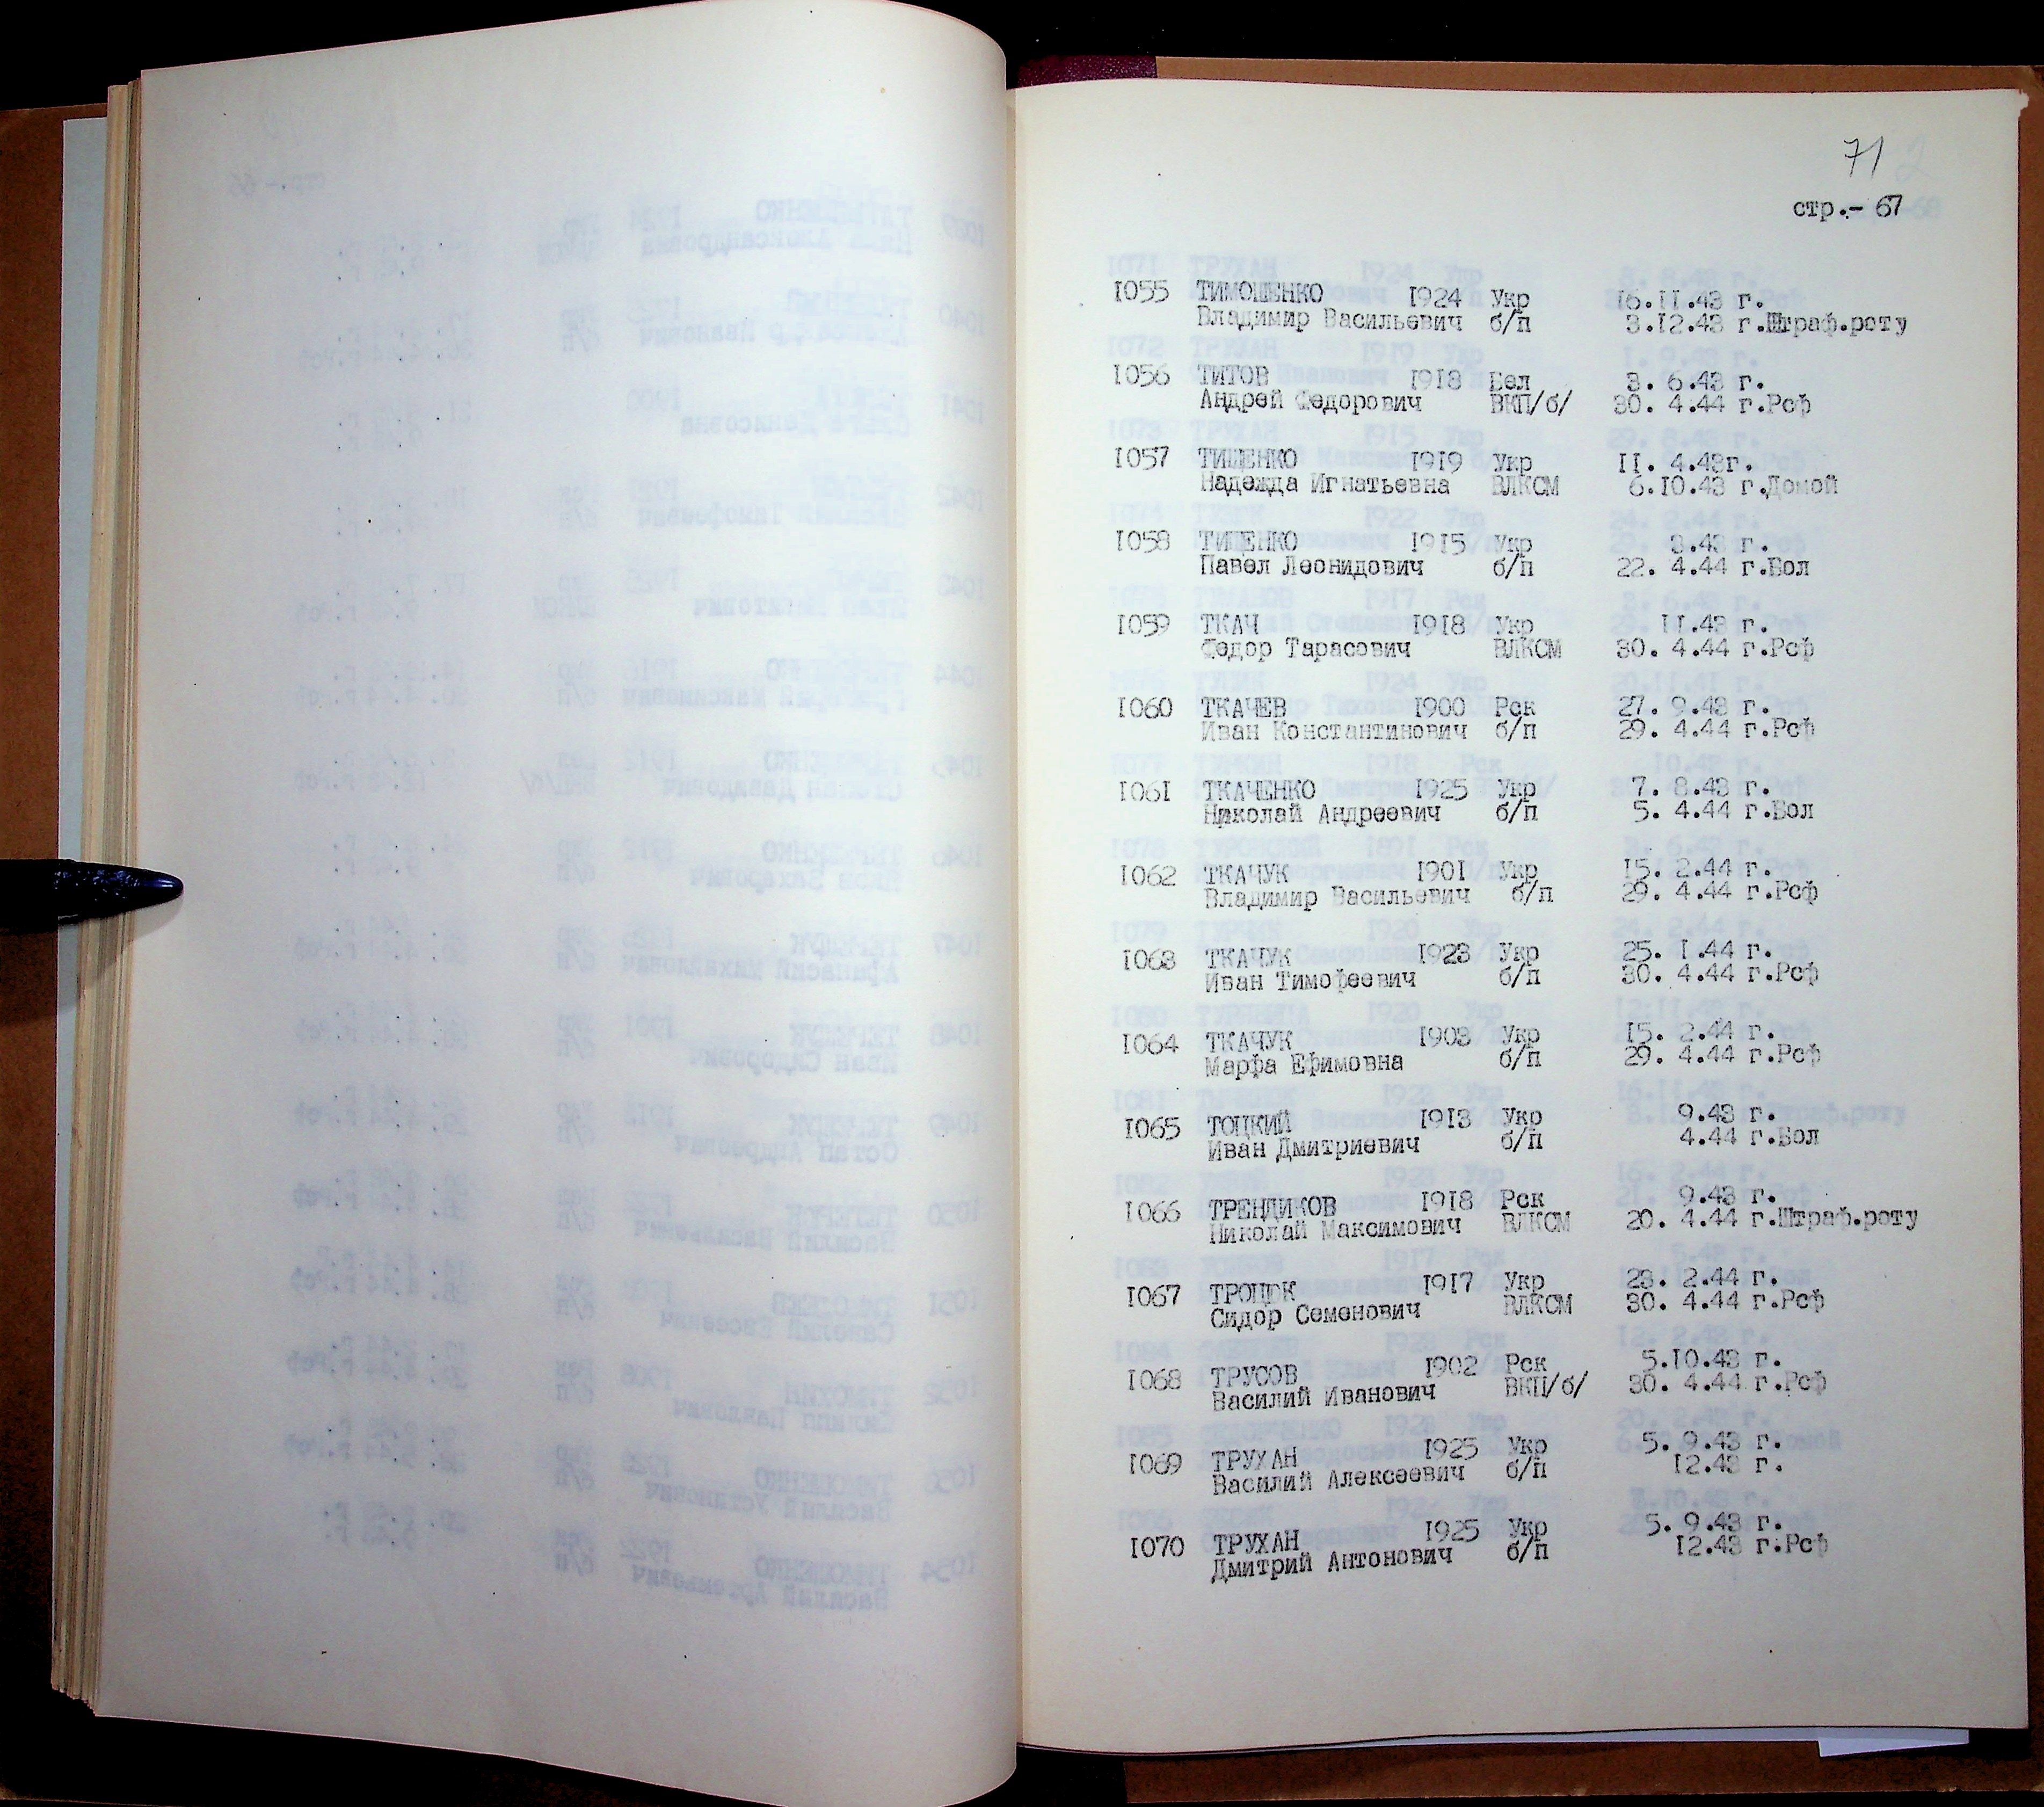 71
стр.- 67
1055 ТИМОШЕНКО 1924 Укр 16.11.43 г.
Владимир Васильевич б/п 3.12.43 г.Штраф.роту
1056 ТИТОВ 1918 Бел 3. 6.43 г.
Андрей Федорович ВКП/б/ 30. 4.44 г.Рсф
1057 ТИЩЕНКО 1919 Укр 11. 4.43г.
Надежда Игнатьевна ВЛКСМ 6.10.43 г.Домой
1058 ТИЩЕНКО 1915 Укр 8.43 г.
Павел Леонидович б/п 22. 4.44 г.Бол
1059 ТКАЧ 1918 Укр 11.43 г.
Федор Тарасович ВЛКСМ 30. 4.44 г.Рсф
1060 ТКАЧЕВ 1900 Рск 27. 9.43 г.
Иван Константинович б/п 29. 4.44 г.Рсф
1061 ТКАЧЕНКО 1925 Укр 7. 8.43 г.
Николай Андреевич б/п 5. 4.44 г.Бол
1062 ТКАЧУК 1901 Укр 15. 2.44 г.
Владимир Васильевич б/п 29. 4.44 г.Рсф
1063 ТКАЧУК 1923 Укр 25. 1.44 г.
Иван Тимофеевич б/п 30. 4.44 г.Рсф
1064 ТКАЧУК 1903 Укр 15. 2.44 г.
Марфа Ефимовна б/п 29. 4.44 г.Рсф
1065 ТОЦКИЙ 1913 Укр 9.43 г.
Иван Дмитриевич б/п 4.44 г.Бол
1066 ТРЕНДИКОВ 1918 Рск 9.43 г.
Николай Максимович ВЛКСМ 20. 4.44 г.Штраф.роту
1067 ТРОЦЮК 1917 Укр 23. 2.44 г.
Сидор Семенович ВЛКСМ 30. 4.44 г.Рсф
1068 ТРУСОВ 1902 Рск 5.10.43 г.
Василий Иванович ВКП/б/ 30. 4.44 г.Рсф
1069 ТРУХАН 1925 Укр 5. 9.43 г.
Василий Алексеевич б/п 12.43 г.
1070 ТРУХАН 1925 Укр 5. 9.43 г.
Дмитрий Антонович б/п 12.43 г.Рсф